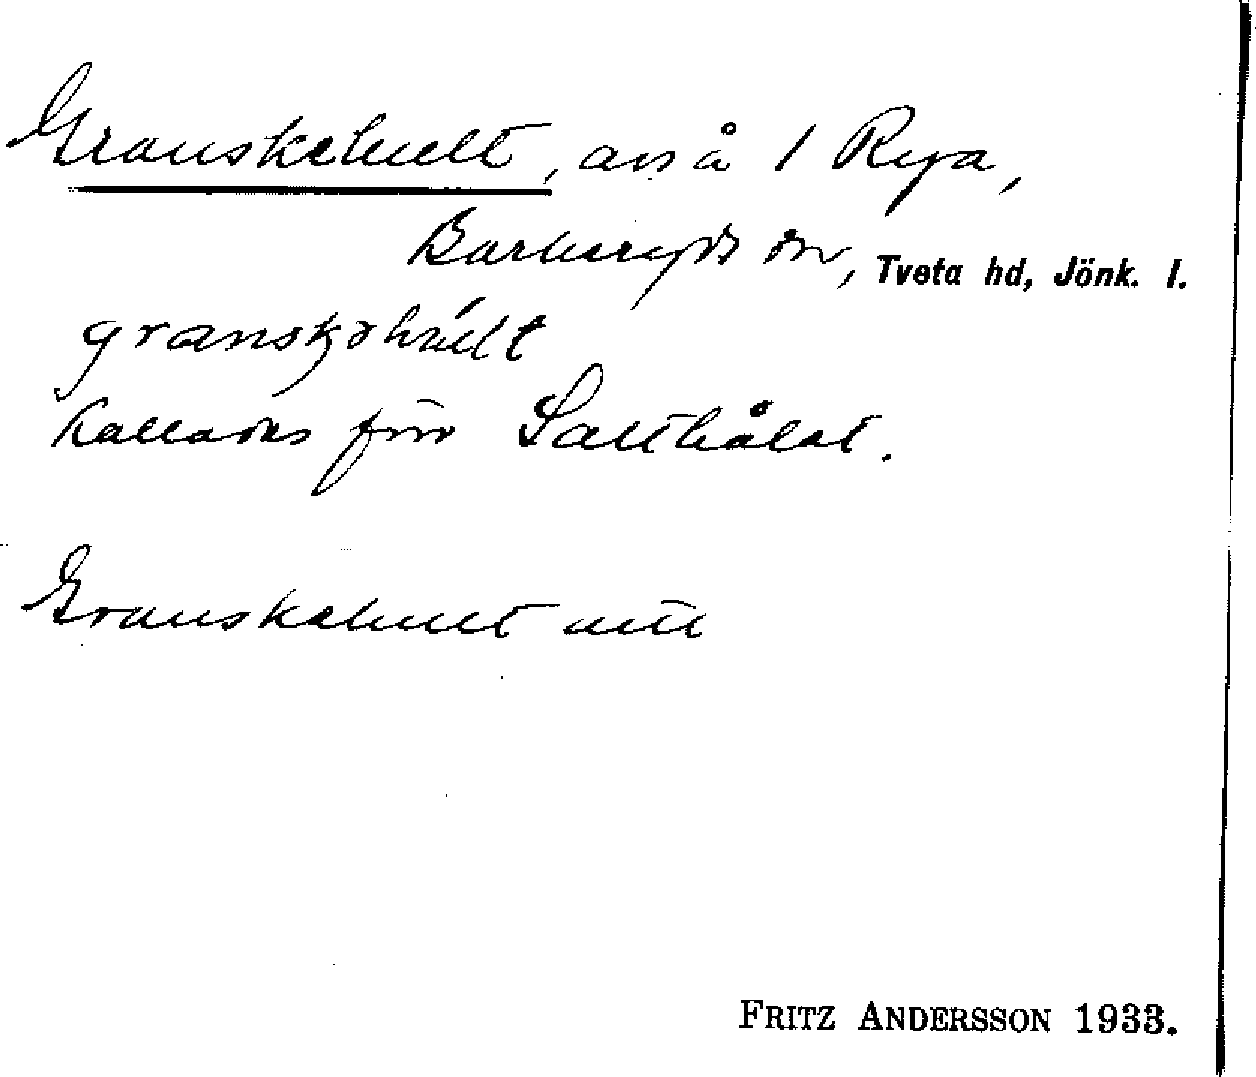 Granskehult, avs å 1 Rya,
Barkeryds sn, Tveta hd, Jönk. l.
granskəhúlt
kallades förr Salthålet.
Granskehult
FRITZ ANDERSSON 1933.